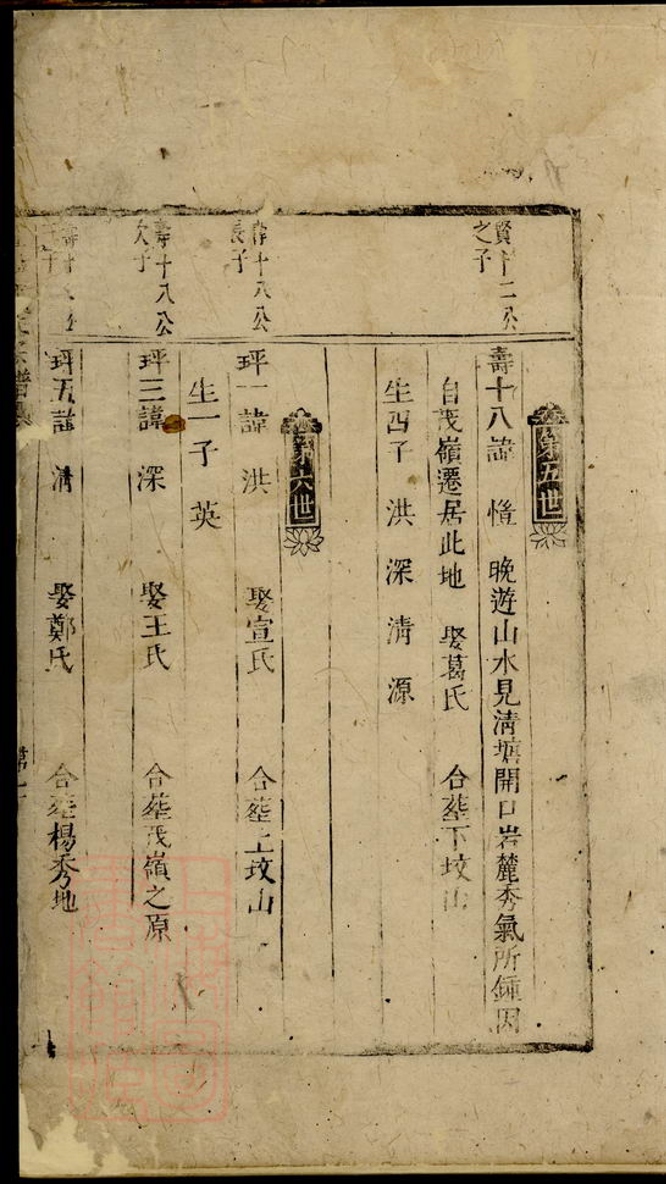 第五世
賢十二公
之子
壽十八諱 惟 晚遊山水見清塘開口岩麓秀氣所鍾因
自茂嶺遷居此地 娶葛氏 合塟下坟山
生四子 洪 深 清 源
第六世
壽十八公
長子
坪一諱 洪 娶宣氏 合塟上坟山
生一子 英
壽十八公
次子
坪三諱 深 娶王氏 合塟茂嶺之原
壽十八公
坪五諱 清 娶鄭氏 合塟楊秀地